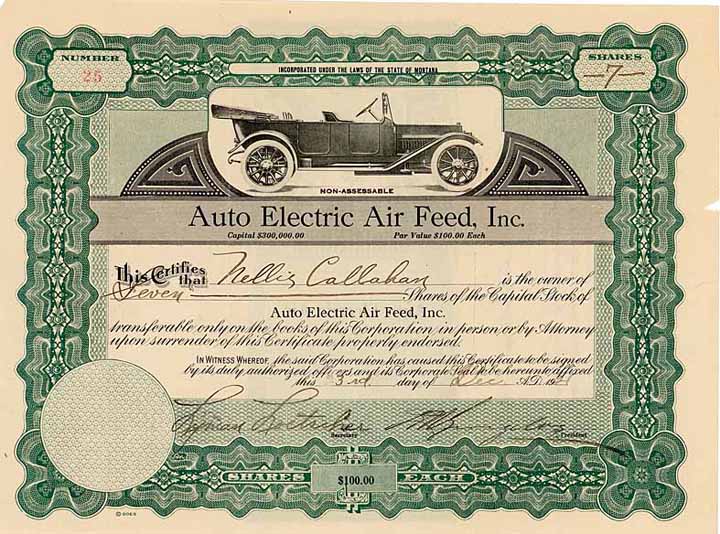 NUMBER
25
INCORPORATED UNDER THE LAWS OF THE STATE OF MONTANA
SHARES
7
NON-ASSESSABLE
Auto Electric Air Feed, Inc.
Capital $300,000.00 Par Value $100.00 Each
This Certifies that Nellie Callahan is the owner of
Seven Shares of the Capital Stock of
Auto Electric Air Feed, Inc.
transferable only on the books of this Corporation in person or by Attorney
upon surrender of this Certificate properly endorsed.
IN WITNESS WHEREOF, the said Corporation has caused this Certificate to be signed
by its duly authorized officers and its Corporate Seal to be hereunto affixed
this 3rd day of Dec A.D. 19
Lyman
Secretary President
SHARES $100.00 EACH
© GOES